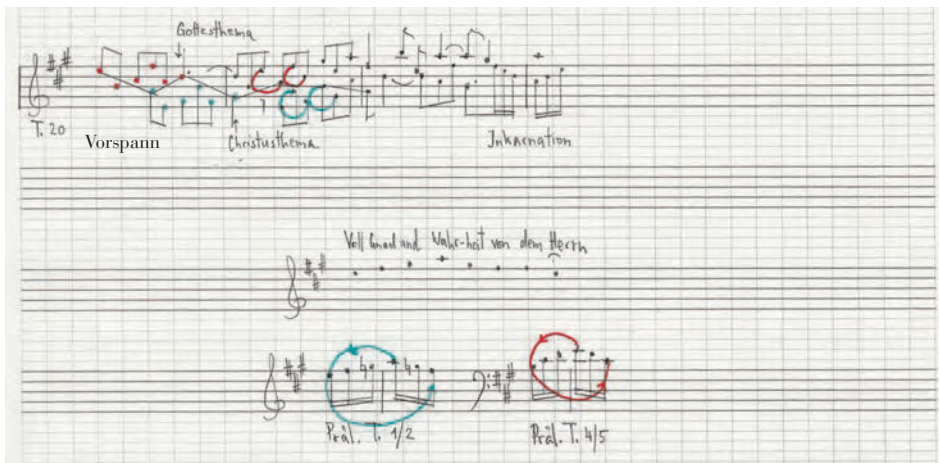 Gottesthema
T. 20
Vorspann
Christusthema
Inkarnation
Voll Gnad und Wahr-heit von dem Herrn
Präl. T. 1/2
Präl. T. 4/5